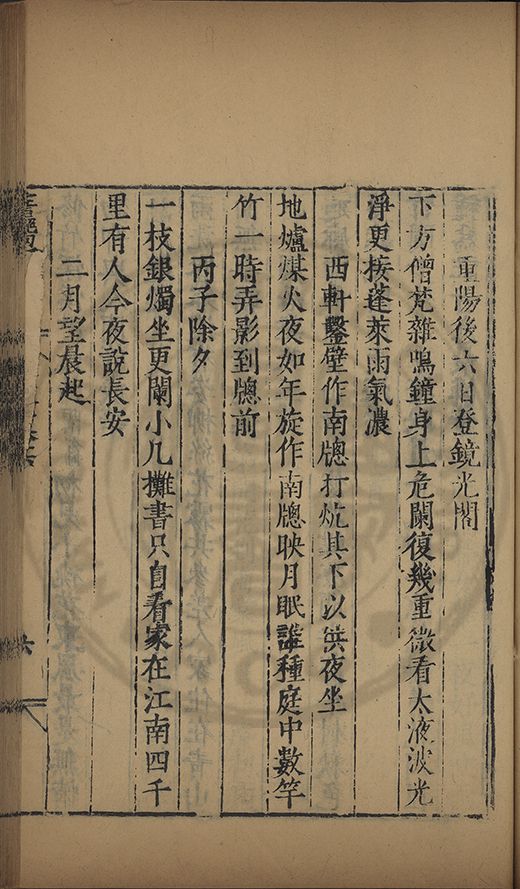 重陽後六日登鏡光閣
下方僧梵雜鳴鐘身上危闌復幾重微看太液波光
淨更接蓬萊雨氣濃
西軒鑿壁作南牕打炕其下以供夜坐
地爐煤火夜如年旋作南牕映月眠誰種庭中數竿
竹一時弄影到牕前
丙子除夕
一枝銀燭坐更闌小几攤書只自看家在江南四千
里有人今夜說長安
二月望晨起
六